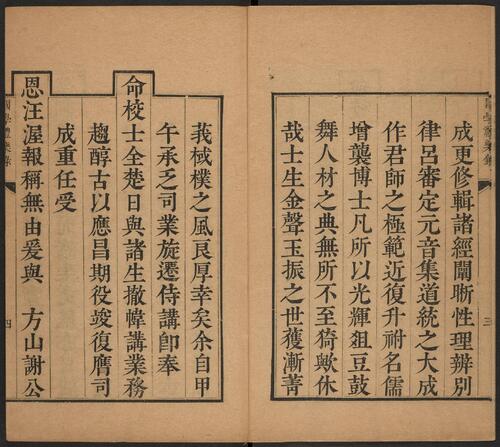 成更修輯諸經闡晰性理辨别
律呂審定元音集道統之大成
作君師之極範近復升祔名儒
增襲博士凡所以光輝俎豆鼓
舞人材之典無所不至猗歟休
哉士生金聲玉振之世獲漸菁
莪棫樸之風良厚幸矣余自甲
午承乏司業旋遷侍講卽奉
命校士全楚日與諸生撤幃講業務
趨醇古以應昌期役竣復膺司
成重任受
恩汪濊報稱無由爰與 方山謝公
國學禮樂錄
三
國學禮樂錄
四